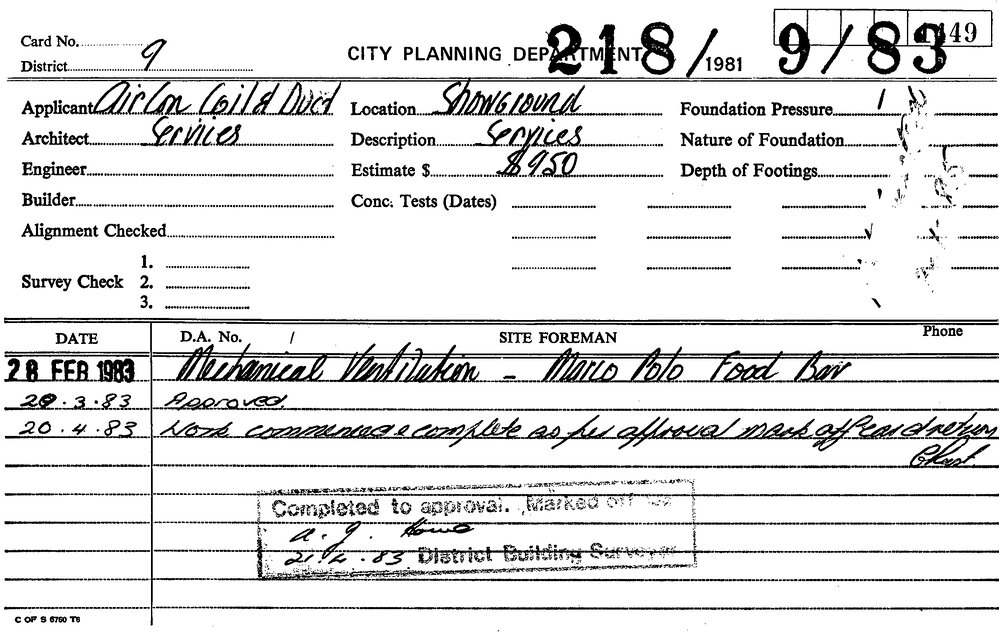 Card No. 1449
District 9
CITY PLANNING DEPARTMENT 218/1981 9/83
Applicant AirCon Coil & Duct Location Showground Foundation Pressure
Architect Services Description Services Nature of Foundation
Engineer Estimate $ $950 Depth of Footings
Builder Conc. Tests (Dates)
Alignment Checked
1.
Survey Check 2.
3.
DATE D.A. No. / SITE FOREMAN Phone
28 FEB 1983 Mechanical Ventilation - Marco Polo Food Bar
29.3.83 Approved.
20.4.83 Work commenced & complete as per approval mark off card return
Completed to approval. Marked off
a. g. Howe
21/4.83 District Building Surveyor
C OF S 6750 T6